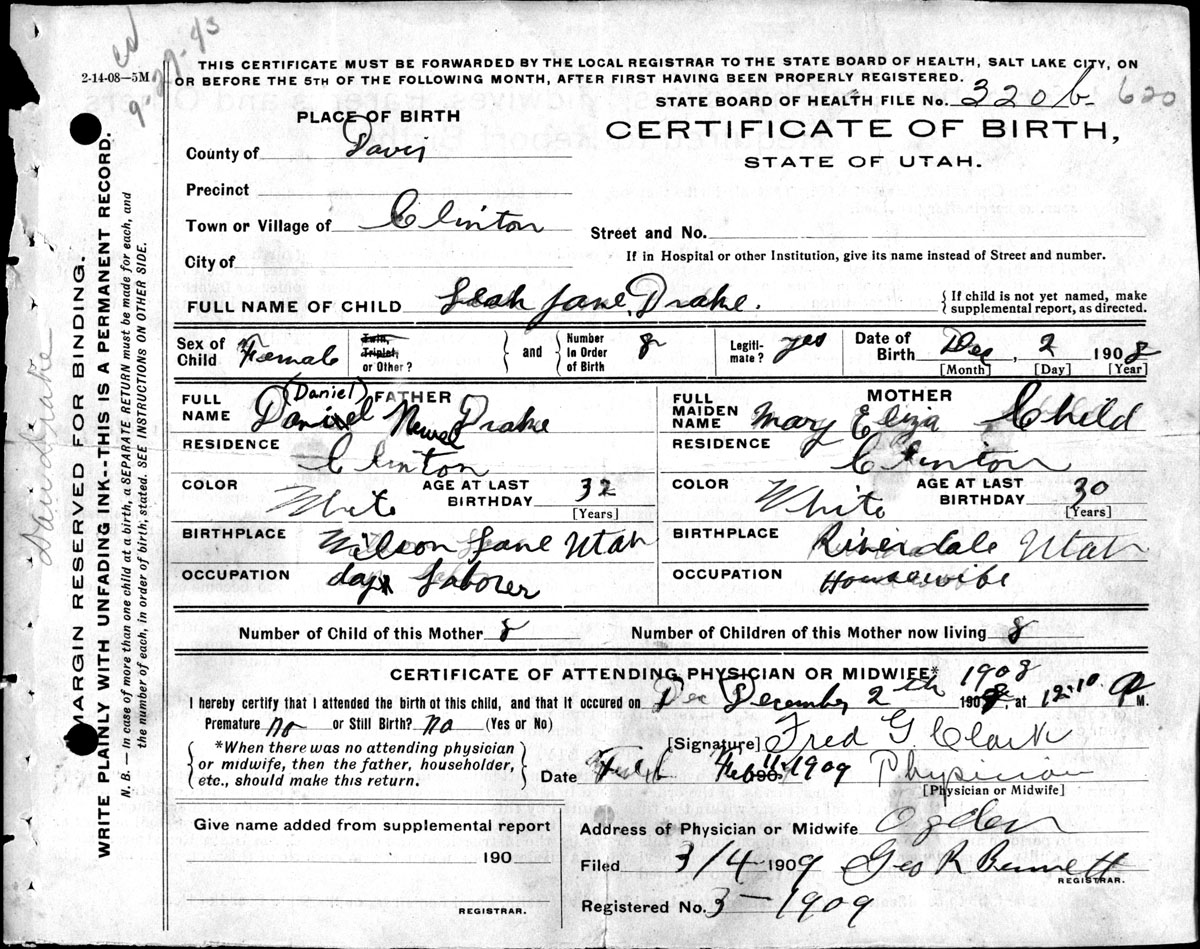 2-14-08—5M
9-27-43
THIS CERTIFICATE MUST BE FORWARDED BY THE LOCAL REGISTRAR TO THE STATE BOARD OF HEALTH, SALT LAKE CITY, ON
OR BEFORE THE 5TH OF THE FOLLOWING MONTH, AFTER FIRST HAVING BEEN PROPERLY REGISTERED.
STATE BOARD OF HEALTH FILE No. 320b 620
PLACE OF BIRTH
CERTIFICATE OF BIRTH,
STATE OF UTAH.
County of Davis
Precinct
Town or Village of Clinton
Street and No.
City of
If in Hospital or other Institution, give its name instead of Street and number.
FULL NAME OF CHILD Leah Jane Drake.
{ If child is not yet named, make
supplemental report, as directed.
Sex of Child Female
Twin, Triplet, or Other? } and { Number In Order of Birth 8
Legiti-mate? yes
Date of Birth Dec, 2 1908
[Month] [Day] [Year]
FATHER
FULL NAME (Daniel) Daniel Newel Drake
MOTHER
FULL MAIDEN NAME Mary Eliza Child
RESIDENCE Clinton
RESIDENCE Clinton
COLOR White AGE AT LAST BIRTHDAY 32 [Years]
COLOR White AGE AT LAST BIRTHDAY 30 [Years]
BIRTHPLACE Wilson Lane Utah
BIRTHPLACE Riverdale Utah
OCCUPATION day Laborer
OCCUPATION Housewife
Number of Child of this Mother 8 Number of Children of this Mother now living 8
CERTIFICATE OF ATTENDING PHYSICIAN OR MIDWIFE* 1908
I hereby certify that I attended the birth of this child, and that it occured on Dec December 2th 1908, at 12-10 P M.
Premature no or Still Birth? No (Yes or No)
{ *When there was no attending physician
or midwife, then the father, householder,
etc., should make this return. }
[Signature] Fred G. Clark
Date Feb 11 1909 Physician
[Physician or Midwife]
Give name added from supplemental report
190
REGISTRAR.
Address of Physician or Midwife Ogden
Filed 3/4 1909 Geo R Bennett
REGISTRAR.
Registered No. 3-1909
MARGIN RESERVED FOR BINDING.
WRITE PLAINLY WITH UNFADING INK--THIS IS A PERMANENT RECORD.
N. B. — In case of more than one child at a birth, a SEPARATE RETURN must be made for each, and
the number of each, in order of birth, stated. SEE INSTRUCTIONS ON OTHER SIDE.